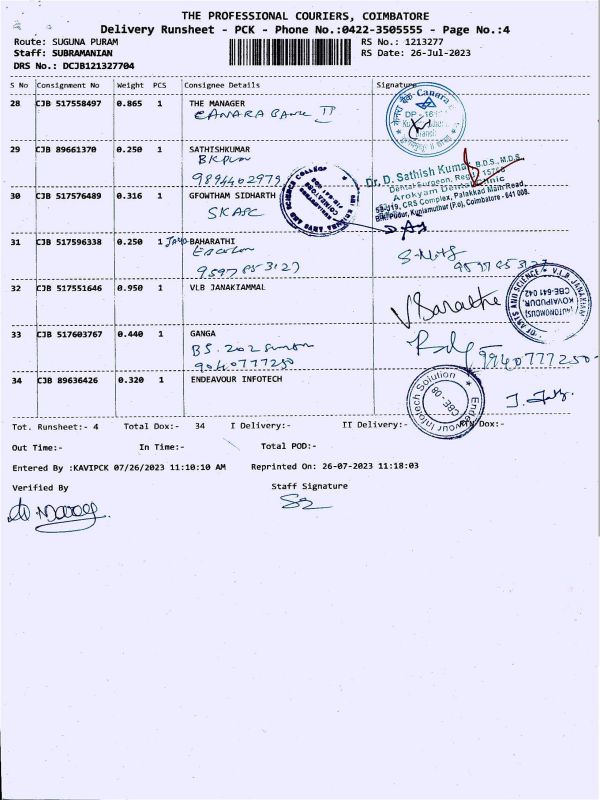 THE PROFESSIONAL COURIERS, COIMBATORE
Delivery Runsheet - PCK - Phone No.:0422-3505555 - Page No.:4
Route: SUGUNA PURAM RS No.: 1213277
Staff: SUBRAMANIAN RS Date: 26-Jul-2023
DRS No.: DCJB121327704
S No Consignment No Weight PCS Consignee Details Signature
28 CJB 517558497 0.865 1 THE MANAGER
CANARA BANK II
29 CJB 89661370 0.250 1 SATHISHKUMAR
9894402979
Dr. D. Sathish Kumar B.D.S., M.D.S.
Dental Surgeon, Reg 15768
Arokyam Dental Clinic
CRS Complex, Palakkad Main Road,
Kuniamuthur (P.o), Coimbatore - 641 008.
30 CJB 517576489 0.316 1 GFOWTHAM SIDHARTH
SKASC
31 CJB 517596338 0.250 1 BAHARATHI
9597853127
32 CJB 517551646 0.950 1 VLB JANAKIAMMAL
(AUTONOMOUS)
KOVAIPUDUR,
CBE-641 042
33 CJB 517603767 0.440 1 GANGA
B5. 202
9940777250 99407777250
34 CJB 89636426 0.320 1 ENDEAVOUR INFOTECH
Endeavour Infotech Solution
CBE - 08
Tot. Runsheet:- 4 Total Dox:- 34 I Delivery:- II Delivery:- Dox:-
Out Time:- In Time:- Total POD:-
Entered By :KAVIPCK 07/26/2023 11:10:10 AM Reprinted On: 26-07-2023 11:18:03
Verified By Staff Signature